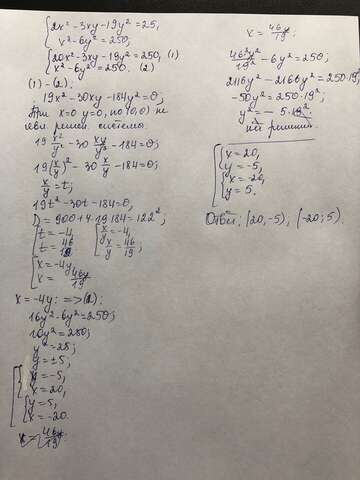 {2x² - 3xy - 19y² = 25,
x² - 6y² = 250,
{20x² - 3xy - 19y² = 250, (1)
x² - 6y² = 250. (2)
(1) - (2).
19x² - 30xy - 184y² = 0;
При x=0 y=0, но (0,0) не
явл. решен. системы.
19 x²/y² - 30 xy/y² - 184 = 0;
19(x/y)² - 30 x/y - 184 = 0;
x/y = t;
19t² - 30t - 184 = 0,
D = 900 + 4·19·184 = 122²;
[t = -4, [x/y = -4,
t = 46/19; x/y = 46/19;
[x = -4y,
x = 46y/19
x = -4y: => (2):
16y² - 6y² = 250;
10y² = 250;
y² = 25;
y = ±5,
[{y = -5,
x = 20,
{y = 5,
x = -20.
x = 46y/19
x = 46y/19:
46²y²/19² - 6y² = 250;
2116y² - 2166y² = 250·19²,
-50y² = 250·19²;
y² = -5·19².
нет решений.
[{x = 20,
y = -5,
{x = -20,
y = 5.
Ответ: (20,-5), (-20;5).